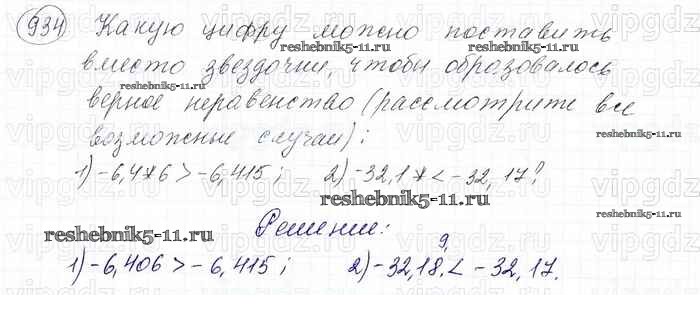 934 Какую цифру можно поставить
вместо звездочки, чтобы образовалось
верное неравенство (рассмотрите все
возможные случаи):
1) -6,4*6 > -6,415; 2) -32,1* < -32,17?
Решение:
9
1) -6,406 > -6,415; 2) -32,18. < -32,17.
reshebnik5-11.ru
reshebnik5-11.ru
reshebnik5-11.ru
reshebnik5-11.ru
reshebnik5-11.ru
vipgdz.ru